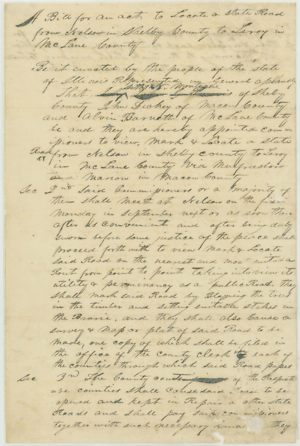 A Bill for an act to Locate a State Road
from Nelson in Shelby County to Leroy in
McLane County
Be it enacted by the people of the State
of Illinois Represented in General assembly
That of Shelby
County John of Macon County
and Alvin Barnette of McLane County
be and they are hereby appointed com
issioners to view, Mark & Locate a State
Road from Nelson in Shelby County to Leroy
in McLane County Via
and Marion in Macon County
Sec 2nd Said Commissioners or a majority of
them Shall Meet at Nelson on the first
Monday in September next or as soon there
after as convenient and after being duly
Sworn before some justice of the peace shall
proceed forth with to view Mark & Locate
said Road on the nearest and most
Rout from point to point taking into view its
utility & permanency as a public Road. they
shall mark said Road by the
in the timber and setting suitable stakes in
the Prairie, and they shall also cause a
survey & Map or plat of said Road to be
made, one copy of which shall be filed in
the office of the county Clerk of each of
the counties through which said Road passes
Sec 3rd The County of the
counties shall Cause said Road to be
opened and kept in Repair as other State
Roads and shall pay
together with they